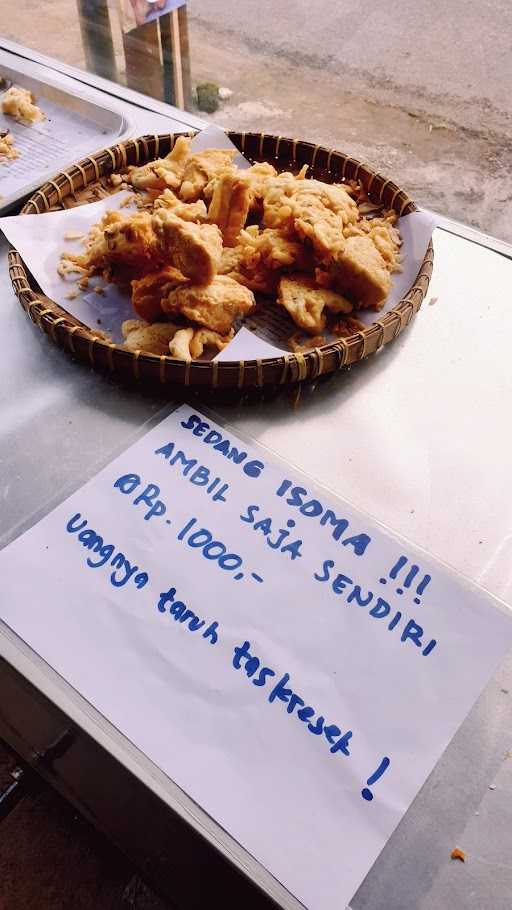 SEDANG ISOMA !!!
AMBIL SAJA SENDIRI
@Rp. 1000,-
Uangnya taruh taskresek !